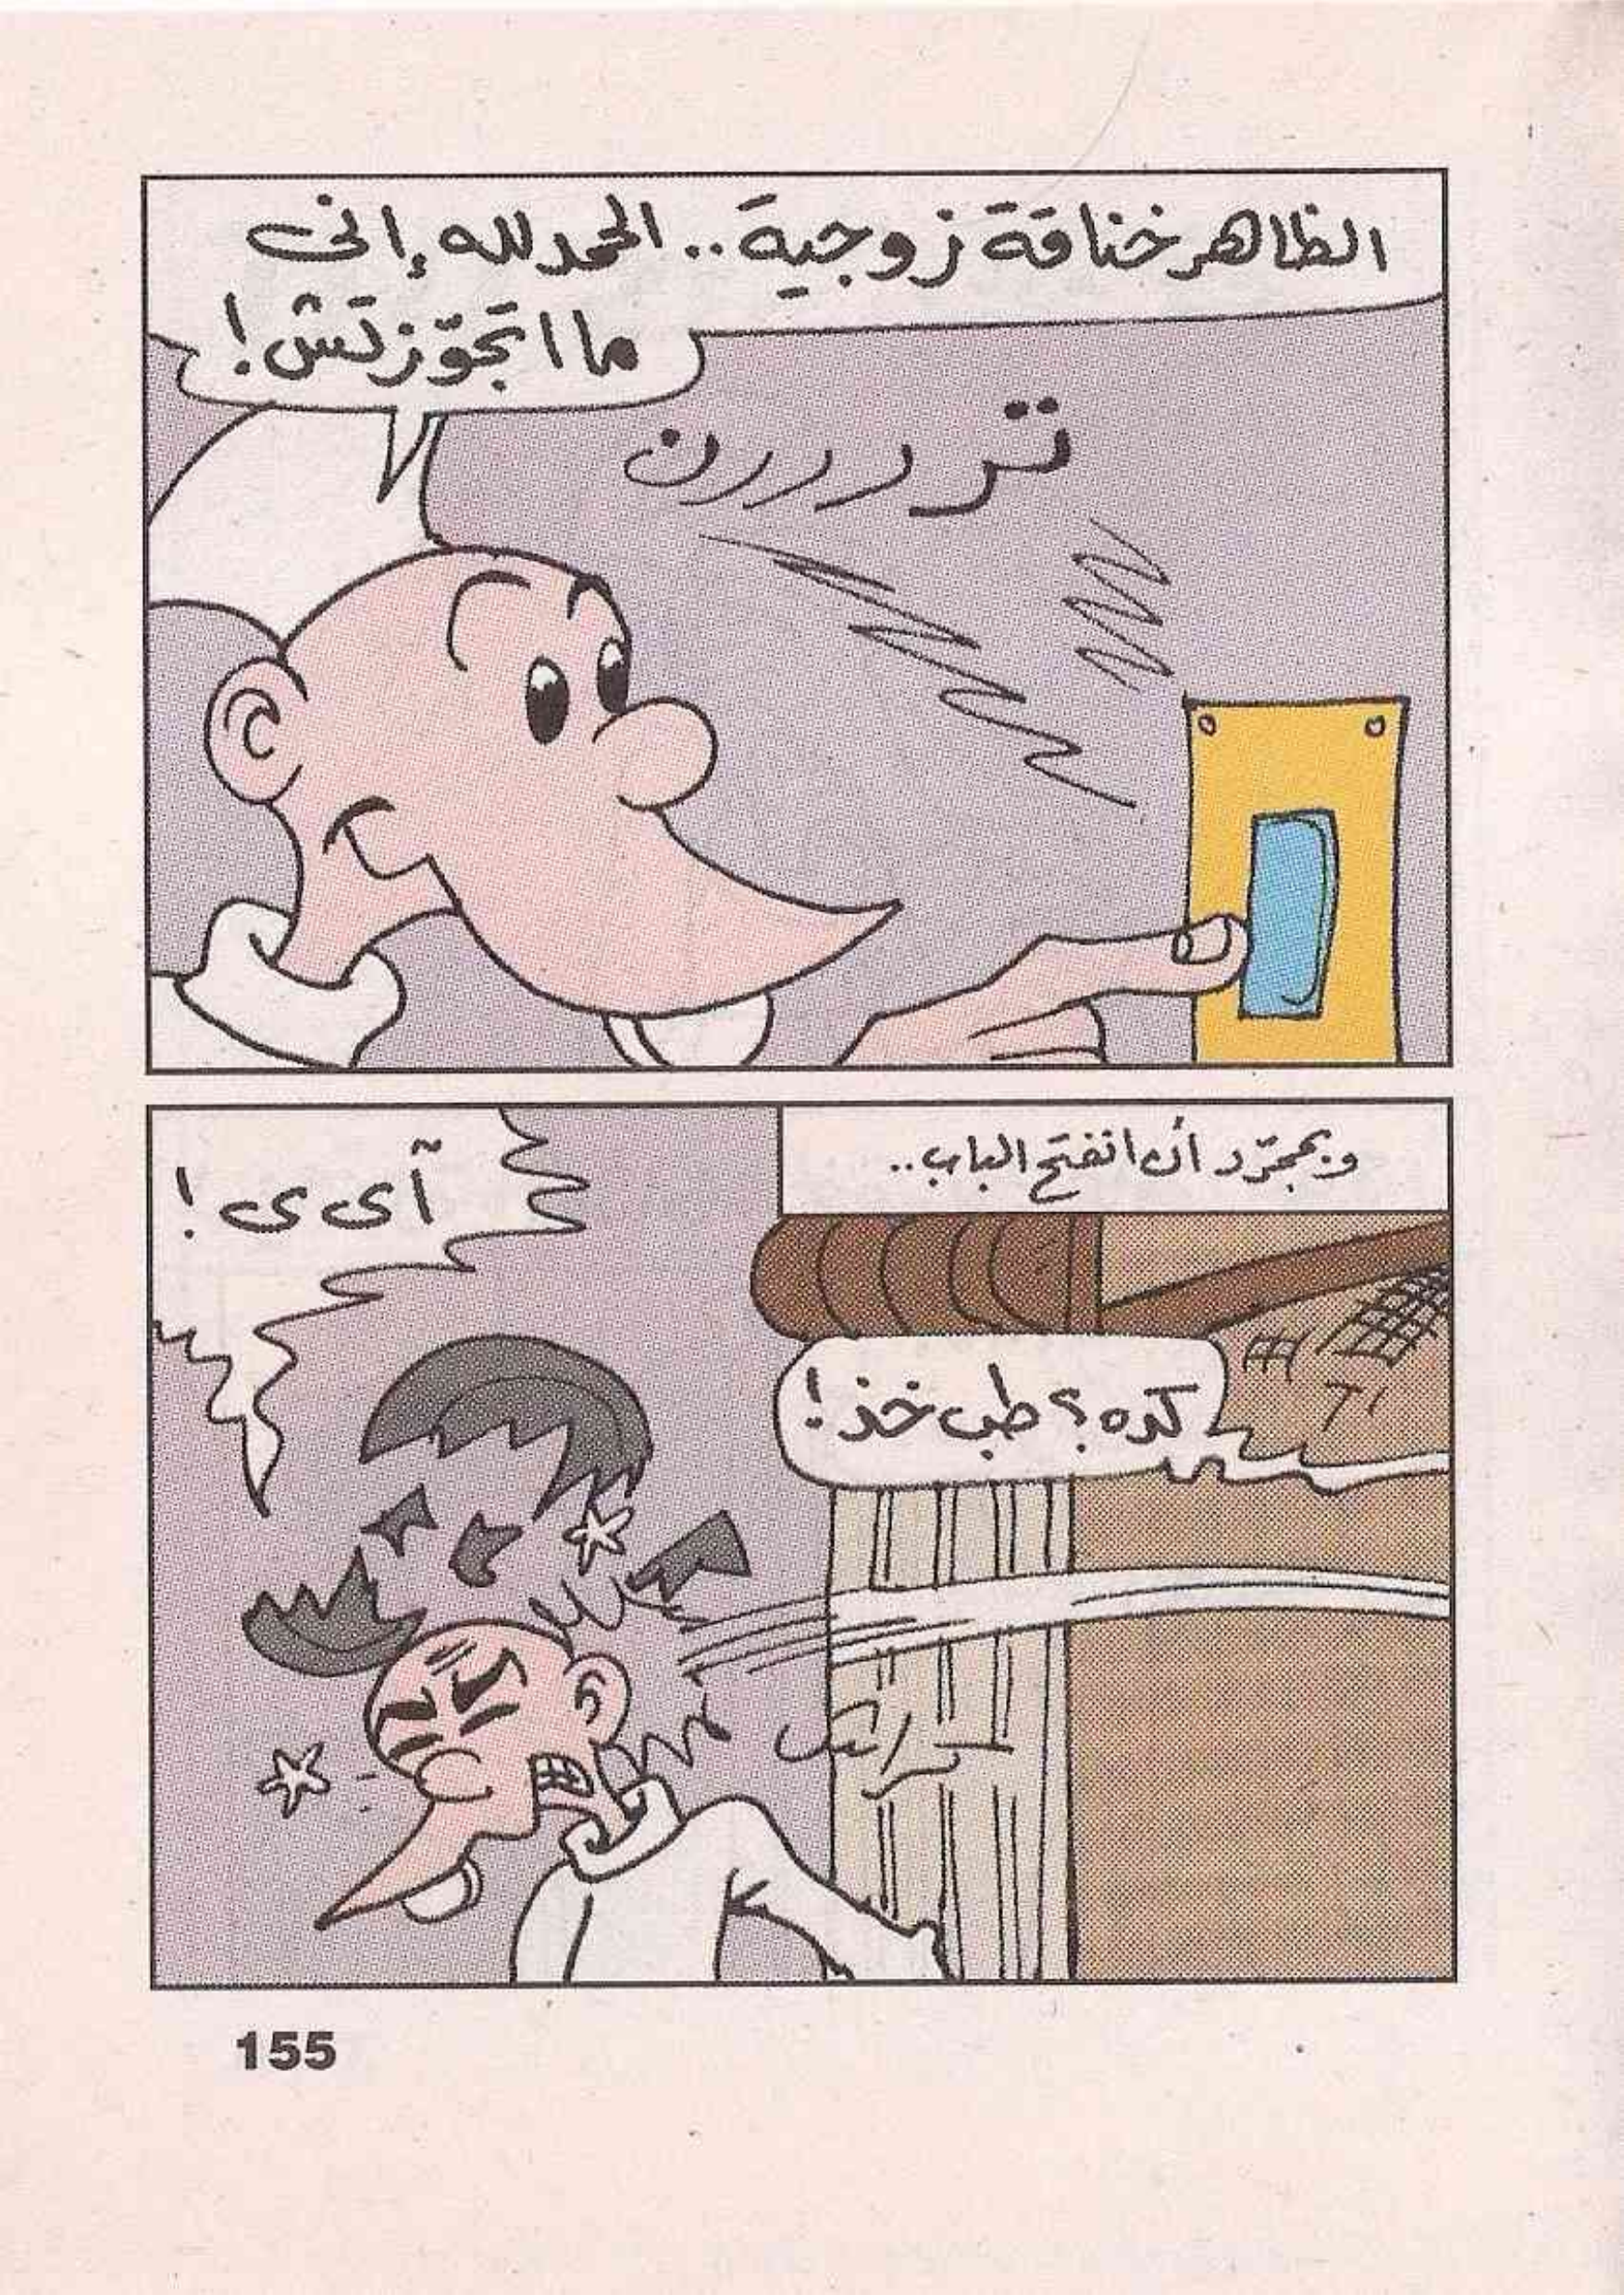 الظاهر خناقة زوجية.. الحمد لله إنى
ما اتجوّزتش!
تردررن
وبمجرّد أن انفتح الباب..
آى ى!
كده؟ طب خذ!
155